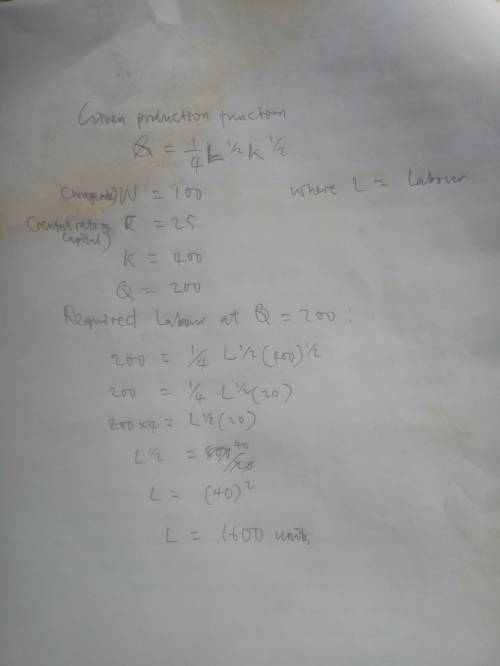 Given production function
Q = 1/4 L^1/2 K^1/2
(wage rate) W = 100 where L = Labour
(rental rate of capital) r = 25
K = 400
Q = 200
Required Labour at Q = 200 :
200 = 1/4 L^1/2 (400)^1/2
200 = 1/4 L^1/2 (20)
200 x 4 = L^1/2 (20)
L^1/2 = 800/20 40
L = (40)^2
L = 1600 units,